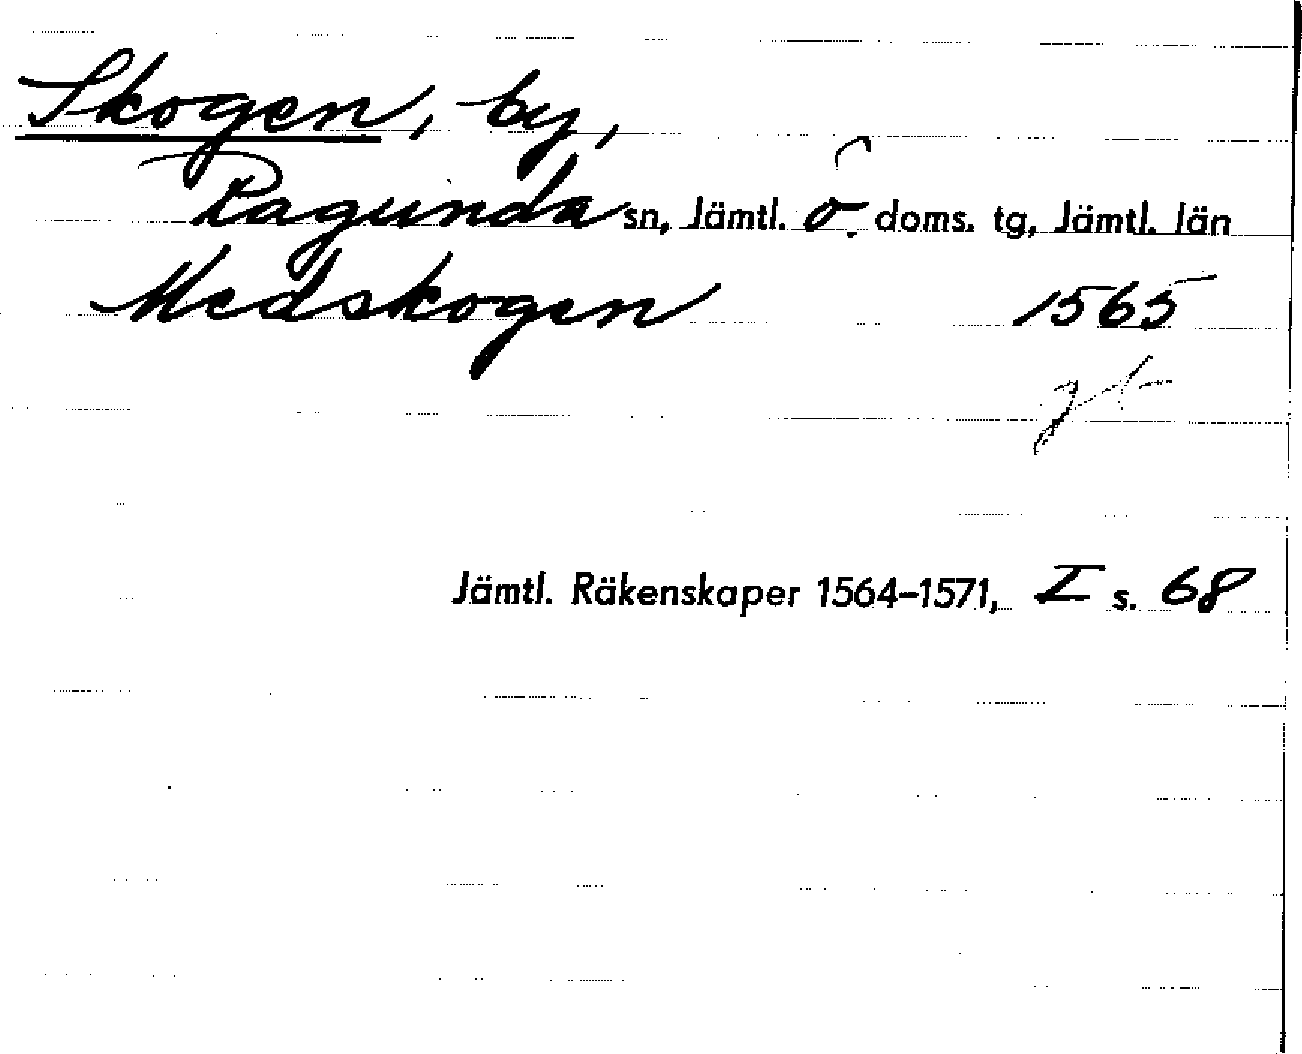 Skogen, by,
Ragunda sn, Jämtl. ö. doms. tg, Jämtl. län
Medskogen 1565
Jämtl. Räkenskaper 1564–1571, I s. 68